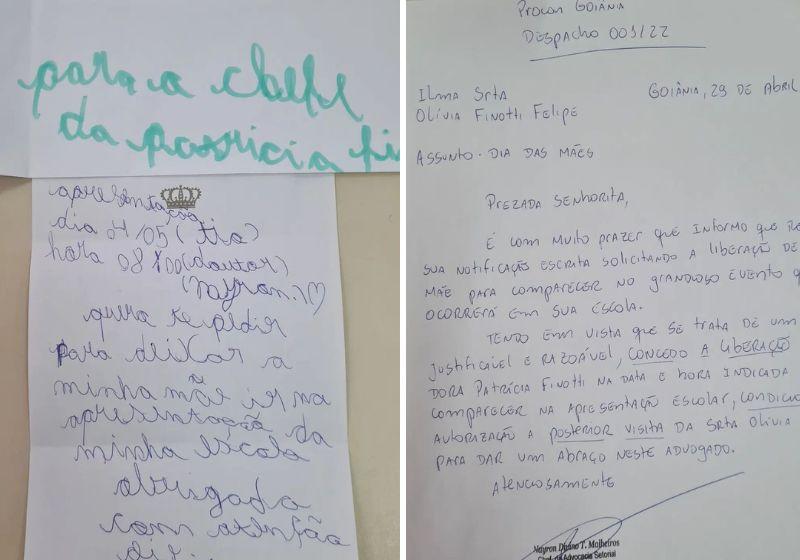 para a cheffe
da patricia fi
apresentação
dia 04/05 (
hora 08:00 (doutor)
(nayron.)♡
queria te pedir
para deixar a
minha mãe ir na
apresentação da
minha escola
obrigada
com atenção
PROCON GOIÂNIA
DESPACHO 001/22
ILMA SRTA
GOIÂNIA, 29 DE ABRIL
OLÍVIA FINOTTI FELIPE
ASSUNTO - DIA DAS MÃES
PREZADA SENHORITA,
É COM MUITO PRAZER QUE INFORMO QUE RE
SUA NOTIFICAÇÃO ESCRITA SOLICITANDO A LIBERAÇÃO DE
MÃE PARA COMPARECER NO GRANDIOSO EVENTO Q
OCORRERÁ EM SUA ESCOLA.
TENDO EM VISTA QUE SE TRATA DE UM
JUSTIFICÁVEL E RAZOÁVEL, CONCEDO A LIBERAÇÃO
DORA PATRÍCIA FINOTTI NA DATA E HORA INDICADA
COMPARECER NA APRESENTAÇÃO ESCOLAR, CONDICIO
AUTORIZAÇÃO A POSTERIOR VISITA DA SRTA OLÍVIA
PARA DAR UM ABRAÇO NESTE ADVOGADO.
ATENCIOSAMENTE
Nayron Divino T. Malheiros
Chefe da Advocacia Setorial